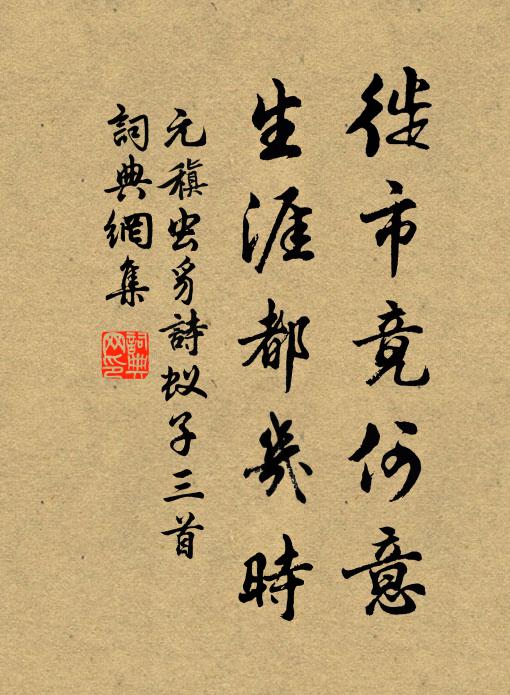 徙市竟何意
生涯都幾時
元稹虫豸詩蚁子三首
詞典網集
詞典網印